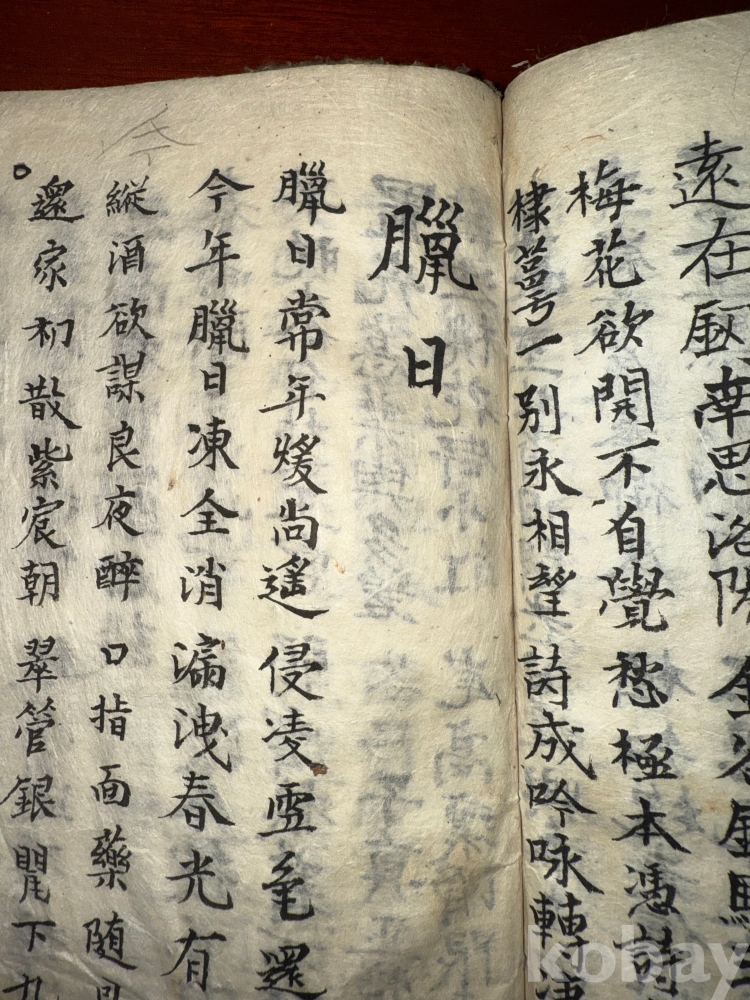 遠在釼南思洛陽金谷
梅花欲開不自覺愁極本憑詩
棣萼一別永相望詩成吟咏轉
臘日
臘日常年煖尚遙侵凌雪色還
今年臘日凍全消漏洩春光有
縱酒欲謀良夜醉口指面藥随
還家初散紫宸朝翠管銀罌下九
kobay